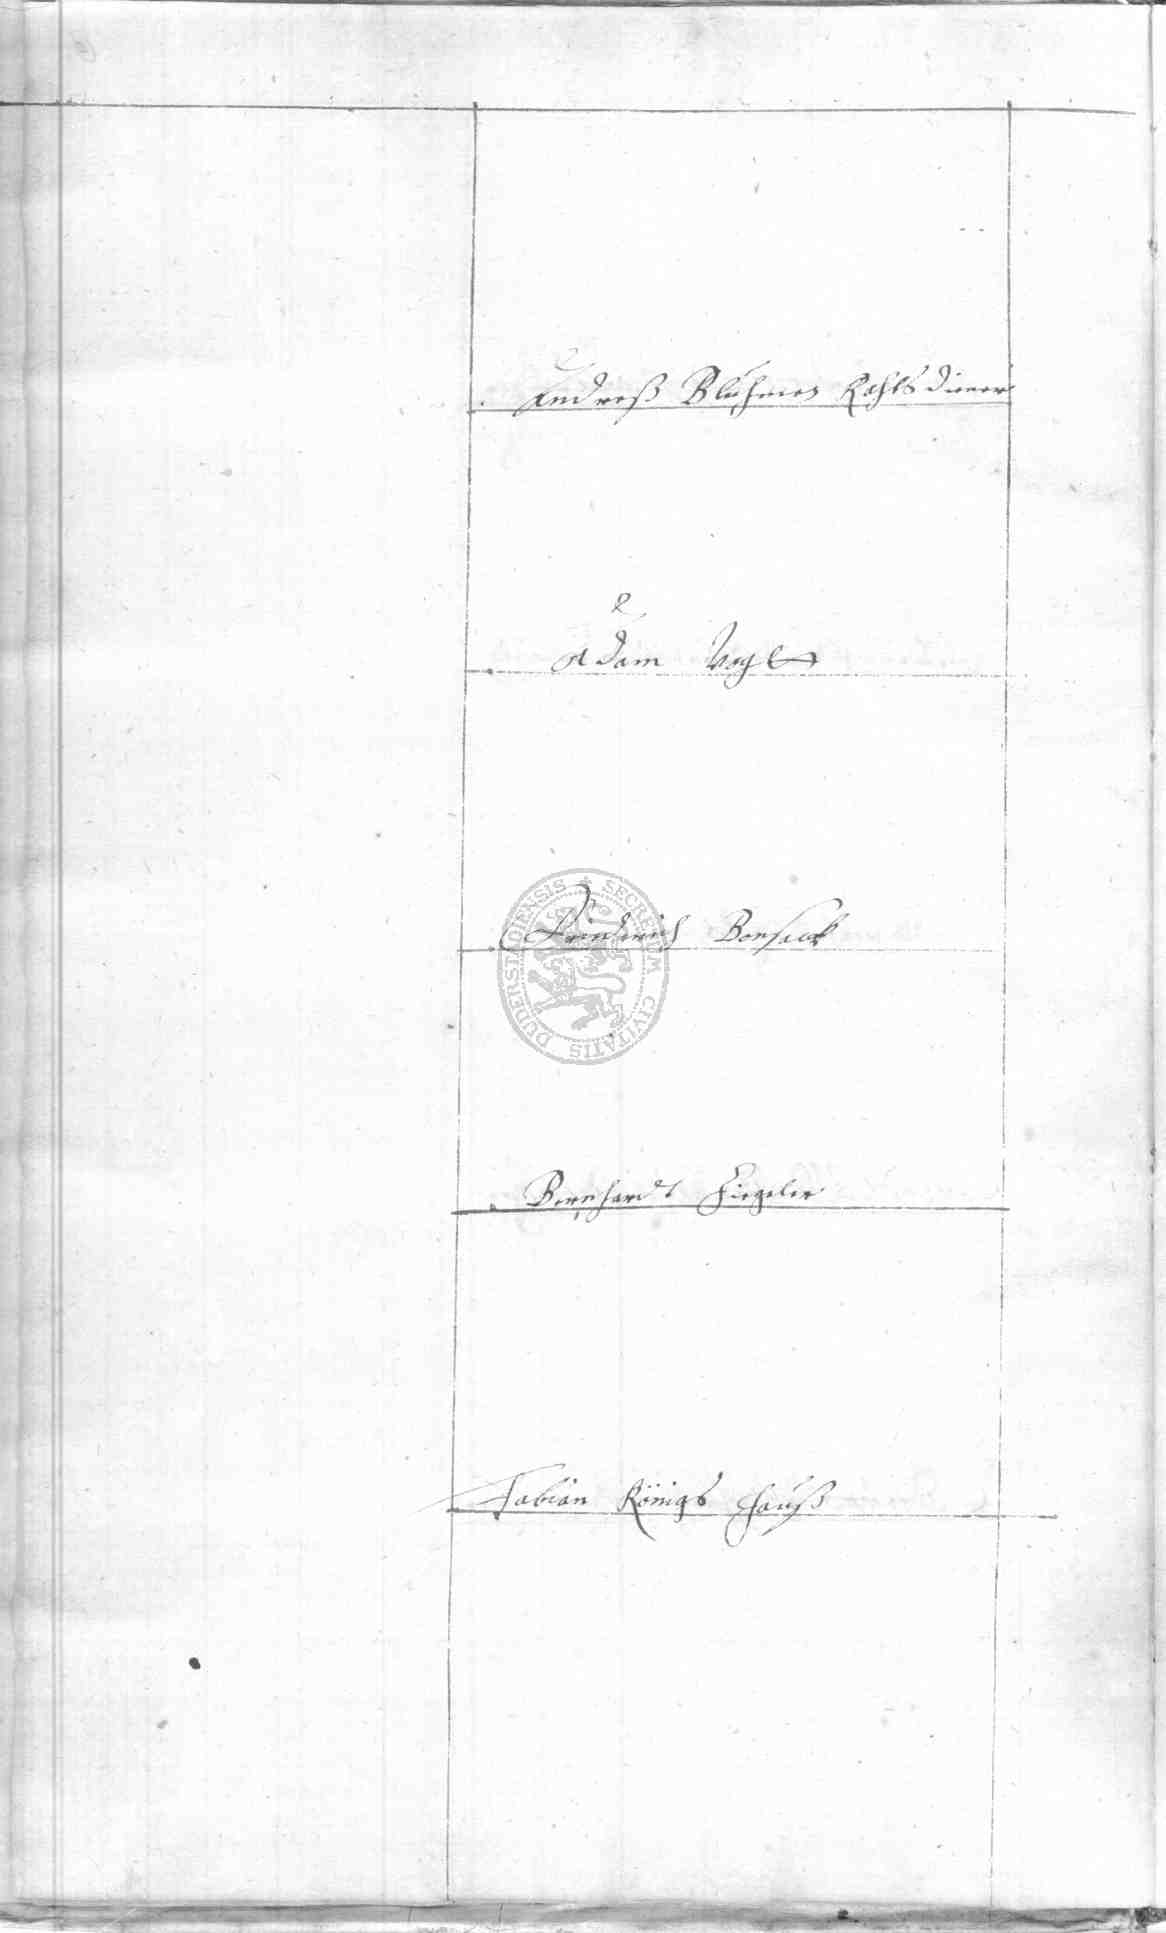 Andreß Bluhmen Rahtsdiener
Adam Vogt
Friederich Bonsack
Bernhardt Ziegeler
Fabian Königs Hauß
SECRETUM CIVITATIS DUDERSTADIENSIS